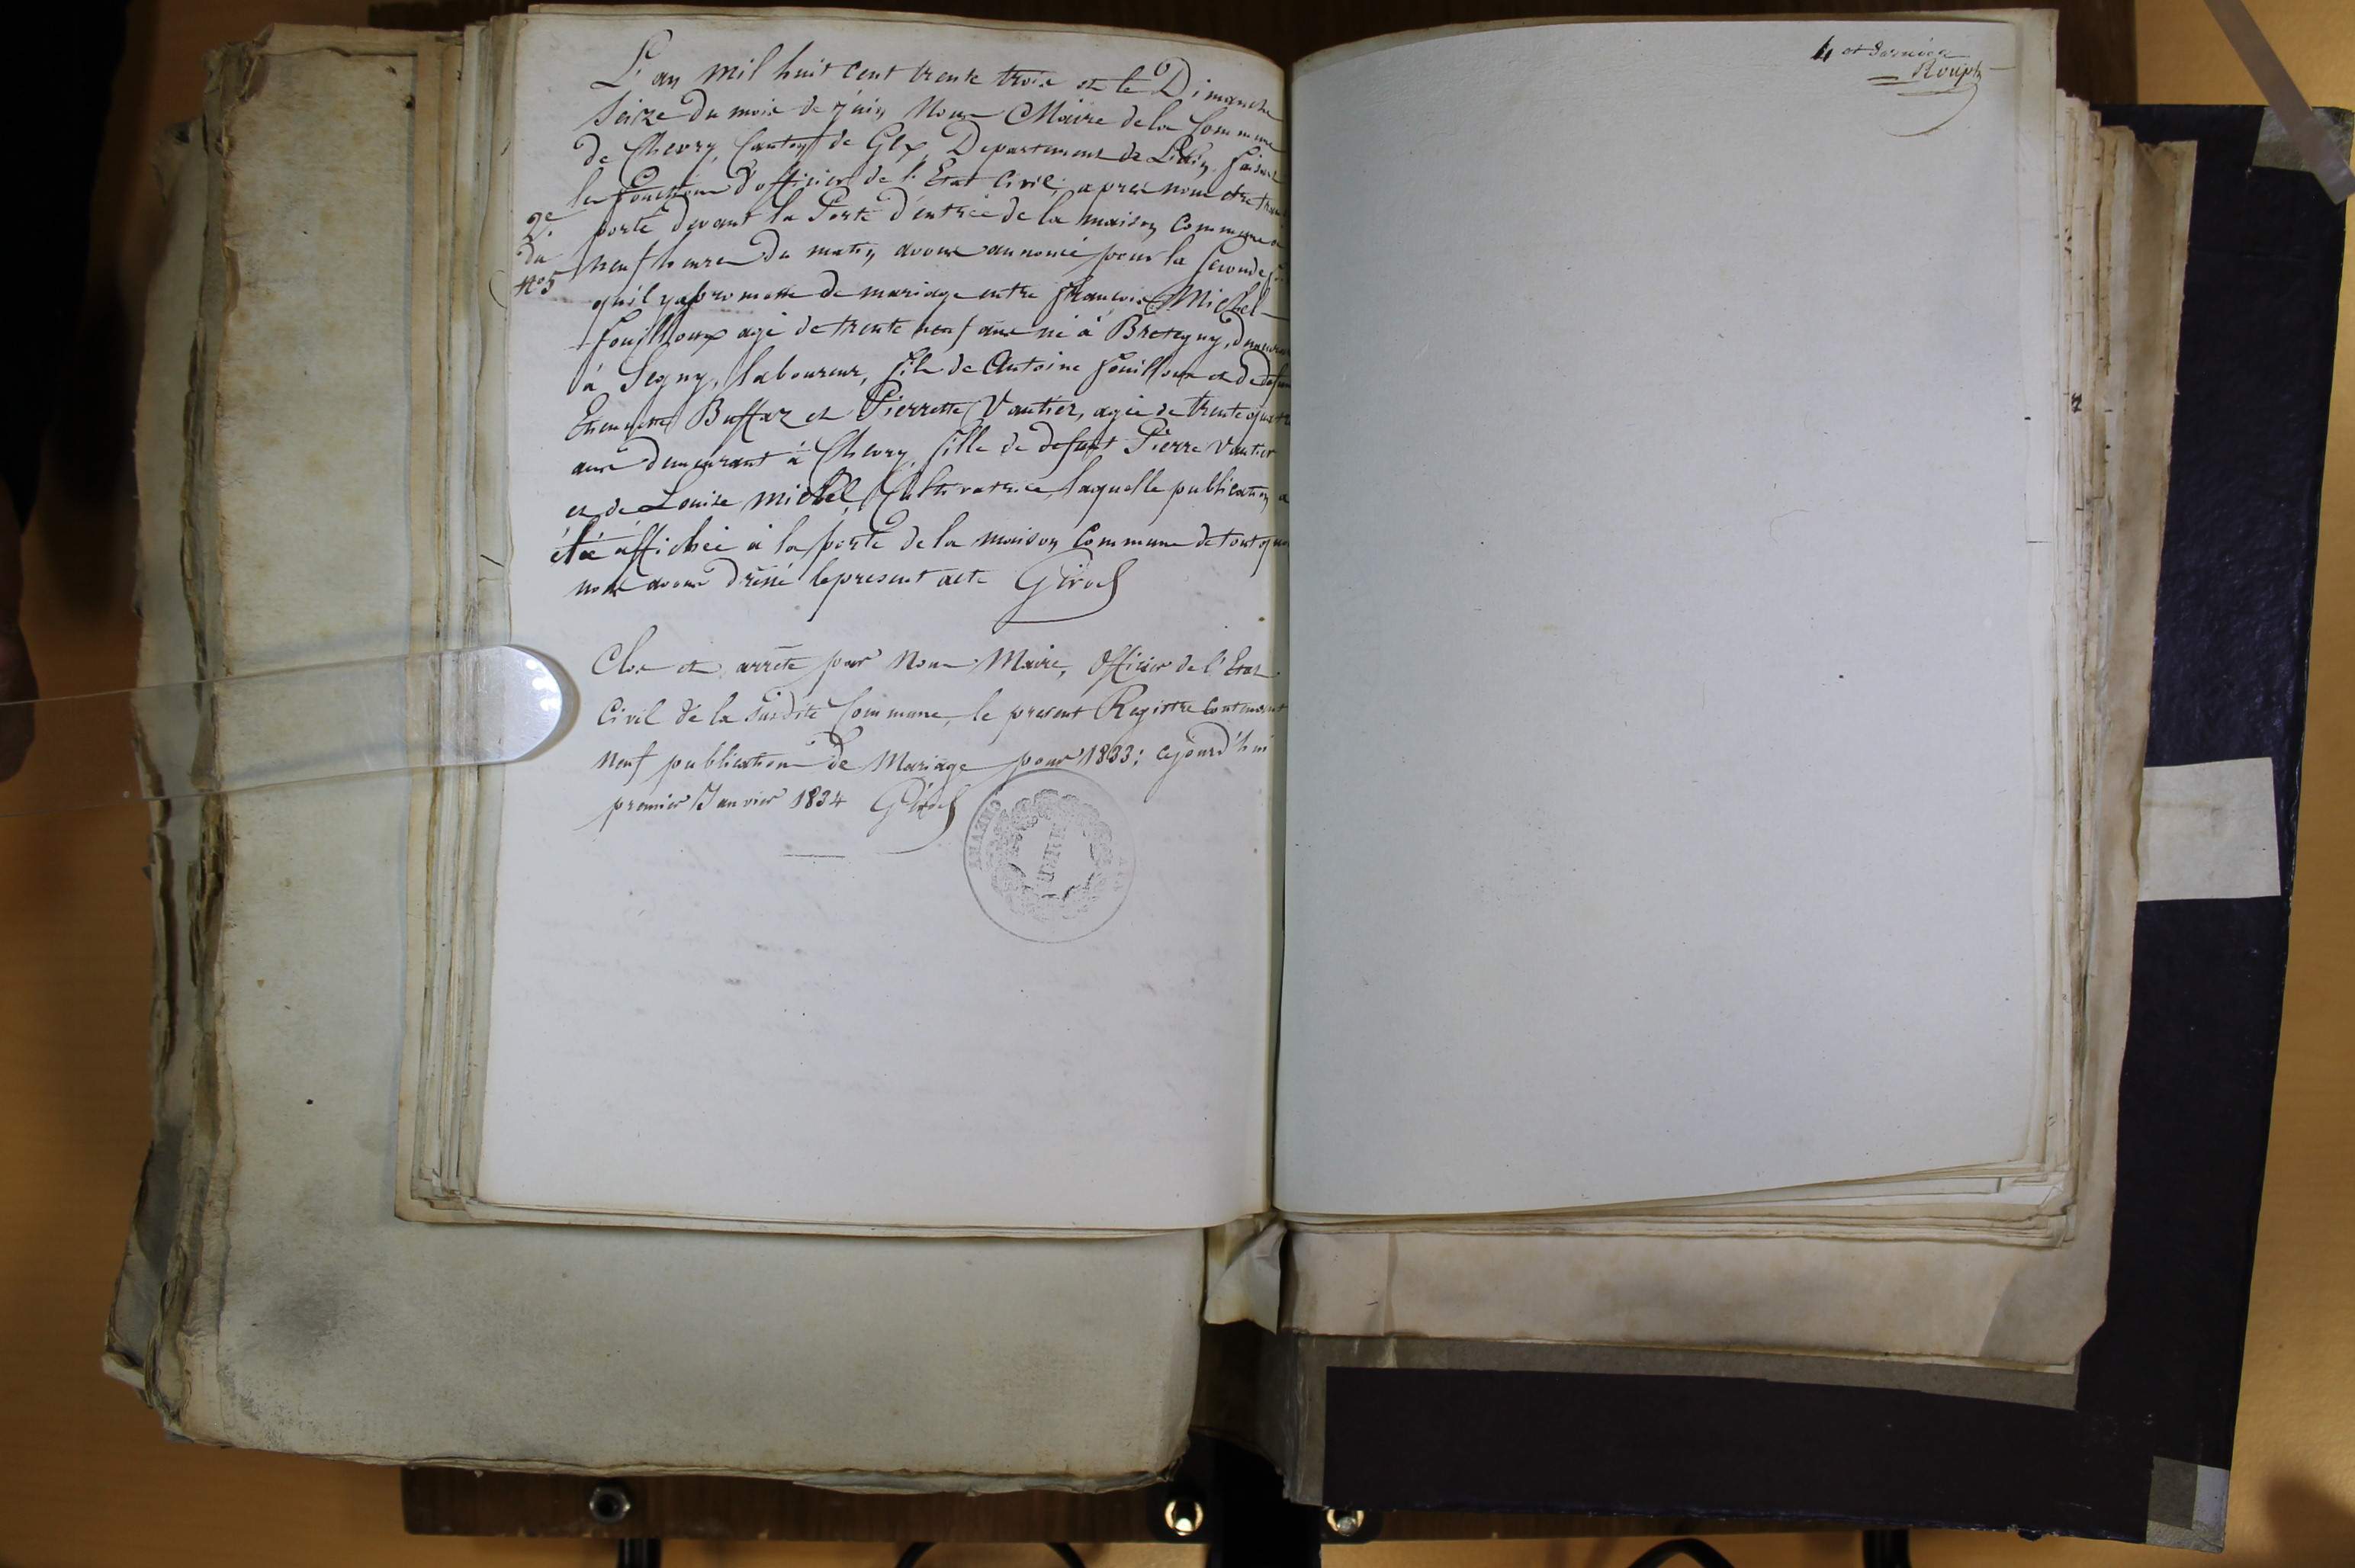 L'an mil huit cent trente trois et le Dimanche
Seize du mois de Juin Nous Maire de la Commune
de Chevry, Canton de Gex, Departement de L'ain, faisant
les fonctions d'officier de l'Etat Civil, apres nous etre trans
porté devant la Porte d'entrée de la maison Commune à
neuf heures du matin, avons annoncé pour la seconde fois
qu'il y a promesse de mariage entre françois Michel
fouilloux agé de trente neuf ans né à Bretigny, demeurant
à Segny, laboureur, fils de Antoine fouilloux et de defunte
Etiennette Buffaz et Pierrette Vautier, agée de trente quatre
ans demeurant à Chevry, fille de defunt Pierre Vautier
et de Louise Michel, Cultivatrice, laquelle publication a
été affichée à la porte de la maison Commune de tout quoi
nous avons dressé le present acte Girod
2e
du
No 5
Clos et arrêté par Nous Maire, Officier de l'Etat
Civil de la susdite Commune, le present Registre contenant
neuf publications de Mariage pour 1833; cejourd'hui
premier Janvier 1834 Girod
MAIRIE
CHEVRY
AIN
4 et dernier
Rouph